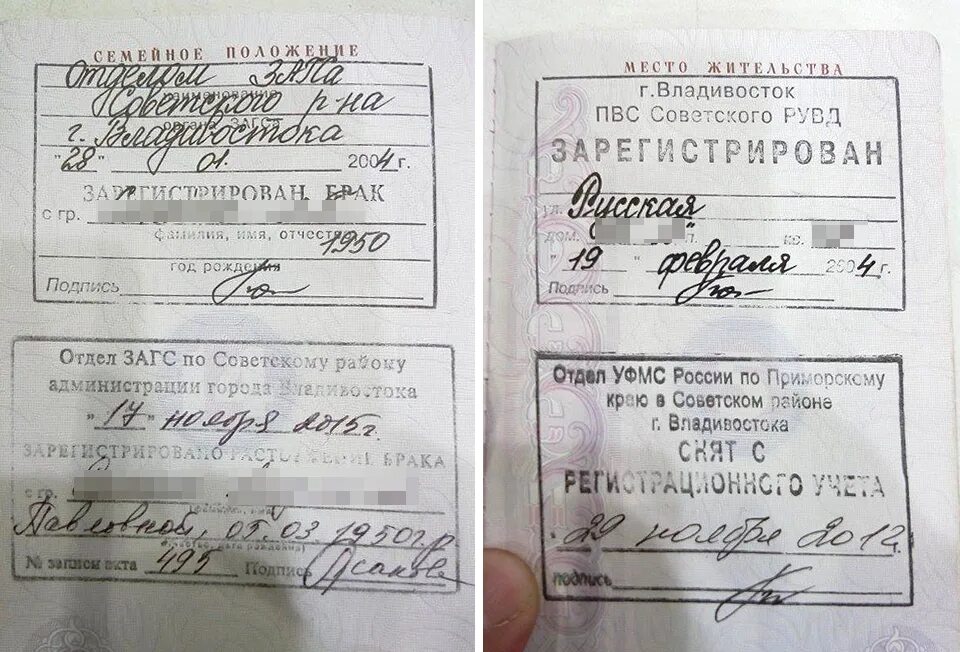 СЕМЕЙНОЕ ПОЛОЖЕНИЕ
Отделом ЗАГСа
наименование
Советского р-на
органа ЗАГСа
г. Владивостока
"28" 01. 2004 г.
ЗАРЕГИСТРИРОВАН БРАК
с гр.
фамилия, имя, отчество
1950
год рождения
Подпись
Отдел ЗАГС по Советскому району
администрации города Владивостока
"17" ноября 2015г.
ЗАРЕГИСТРИРОВАНО РАСТОРЖЕНИЕ БРАКА
с гр.
Павловной 05.03.1950г.р.
№ записи акта 495 Подпись
МЕСТО ЖИТЕЛЬСТВА
г.Владивосток
ПВС Советского РУВД
ЗАРЕГИСТРИРОВАН
ул. Русская
дом. п. кв.
"19" февраля 2004 г.
Подпись
Отдел УФМС России по Приморскому
краю в Советском районе
г. Владивостока
СНЯТ С
РЕГИСТРАЦИОННОГО УЧЕТА
29 ноября 2012г.
подпись